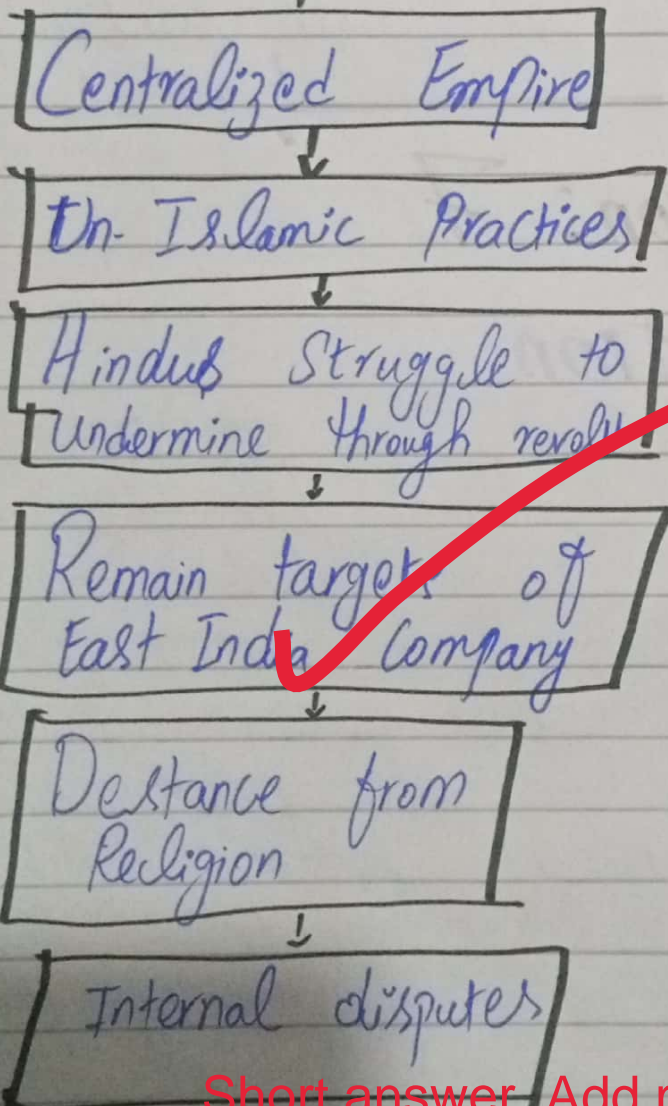 Centralized Empire
Un-Islamic Practices
Hindus Struggle to
Undermine through
Remain targets of
East India Company
Destance from
Recligion
Internal disputes
Short answer. Add